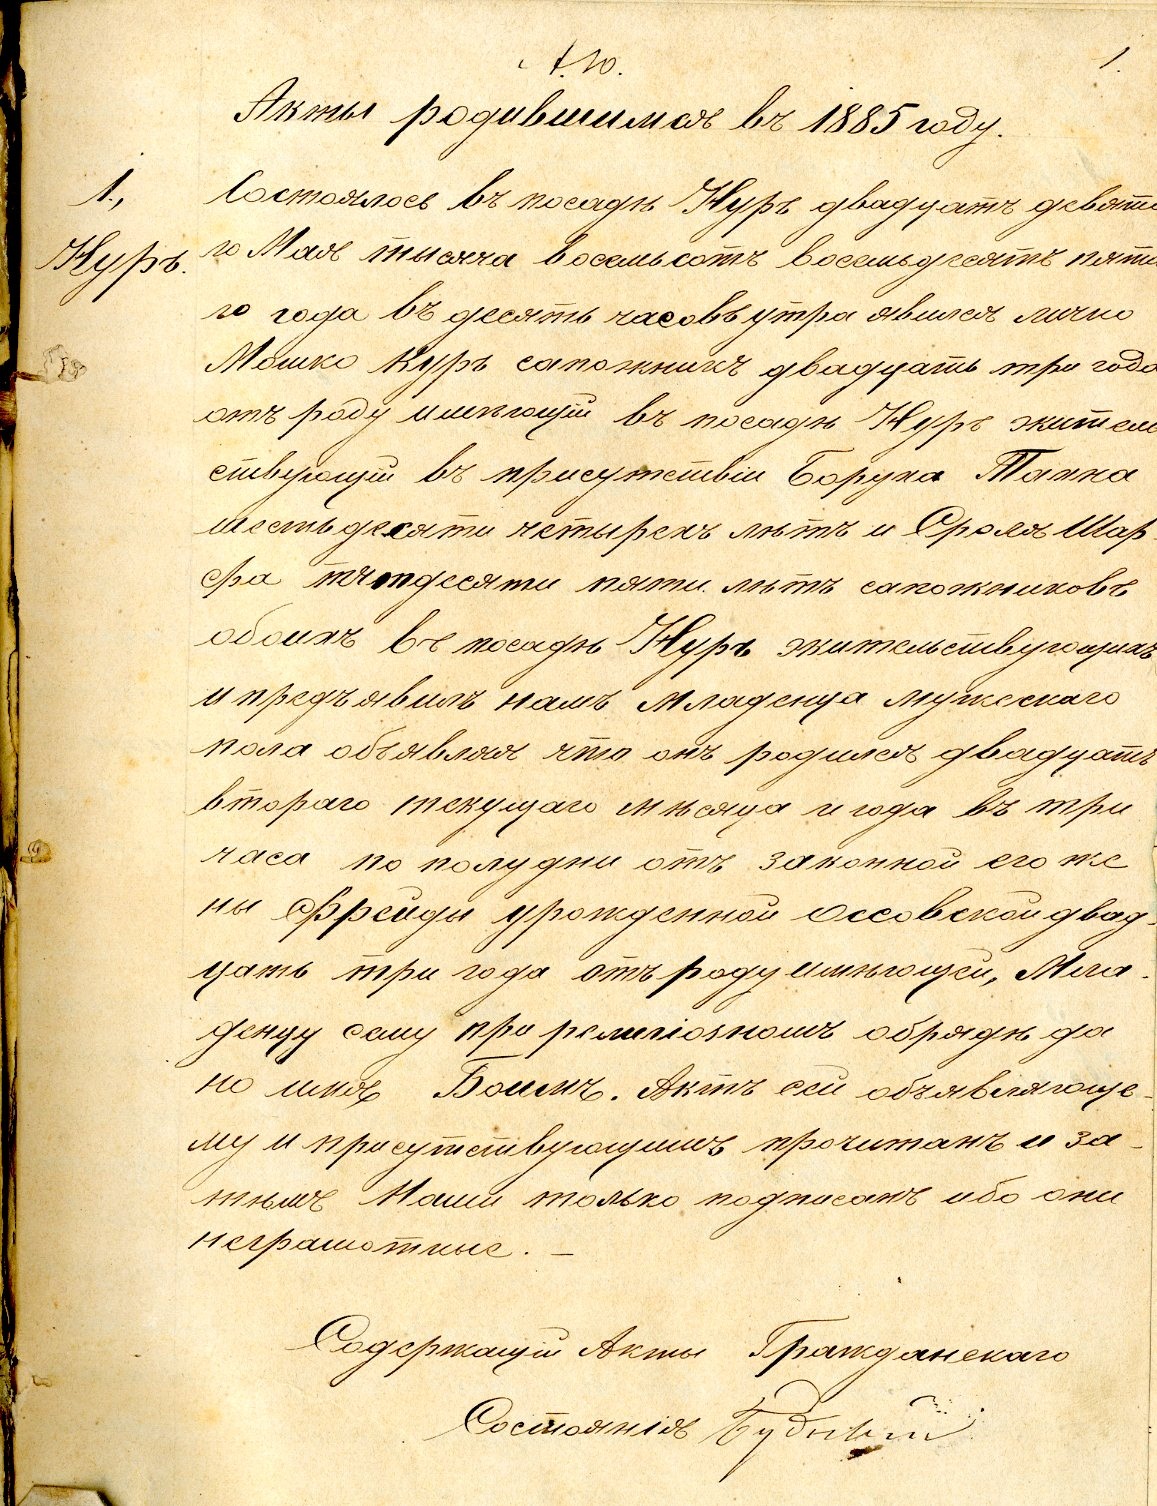 А. Ю.
1.
Акты родившимся въ 1885 году.
1.,
Нуръ.
Состоялось въ посадѣ Нуръ двадцать девята
го Мая тысяча восемьсотъ восемьдесятъ пята
го года въ десять часовъ утра явился лично
Мошко Куръ сапожникъ двадцать три года
отъ роду имѣющій въ посадѣ Нуръ жител
ствующій въ присутствіи Боруха Тапка
шестьдесяти четырехъ лѣтъ и Сроля Шар
фа пятдесяти пяти лѣтъ сапожниковъ
обоихъ въ посадѣ Нуръ жительствующихъ
и предъявилъ намъ младенца мужескаго
пола объявляя что онъ родился двадцать
втораго текущаго мѣсяца и года въ три
часа по полудни отъ законной его же
ны Фрейды урожденной Оссовской двад-
цать три года отъ роду имѣющей, Мла-
денцу сему при религіозномъ обрядѣ да
но имя Боимъ. Актъ сей объявляюще-
му и присутствующимъ прочитанъ и за-
тѣмъ Нами только подписанъ ибо они
неграмотные. –
Содержащій Акты Гражданскаго
Состоянія